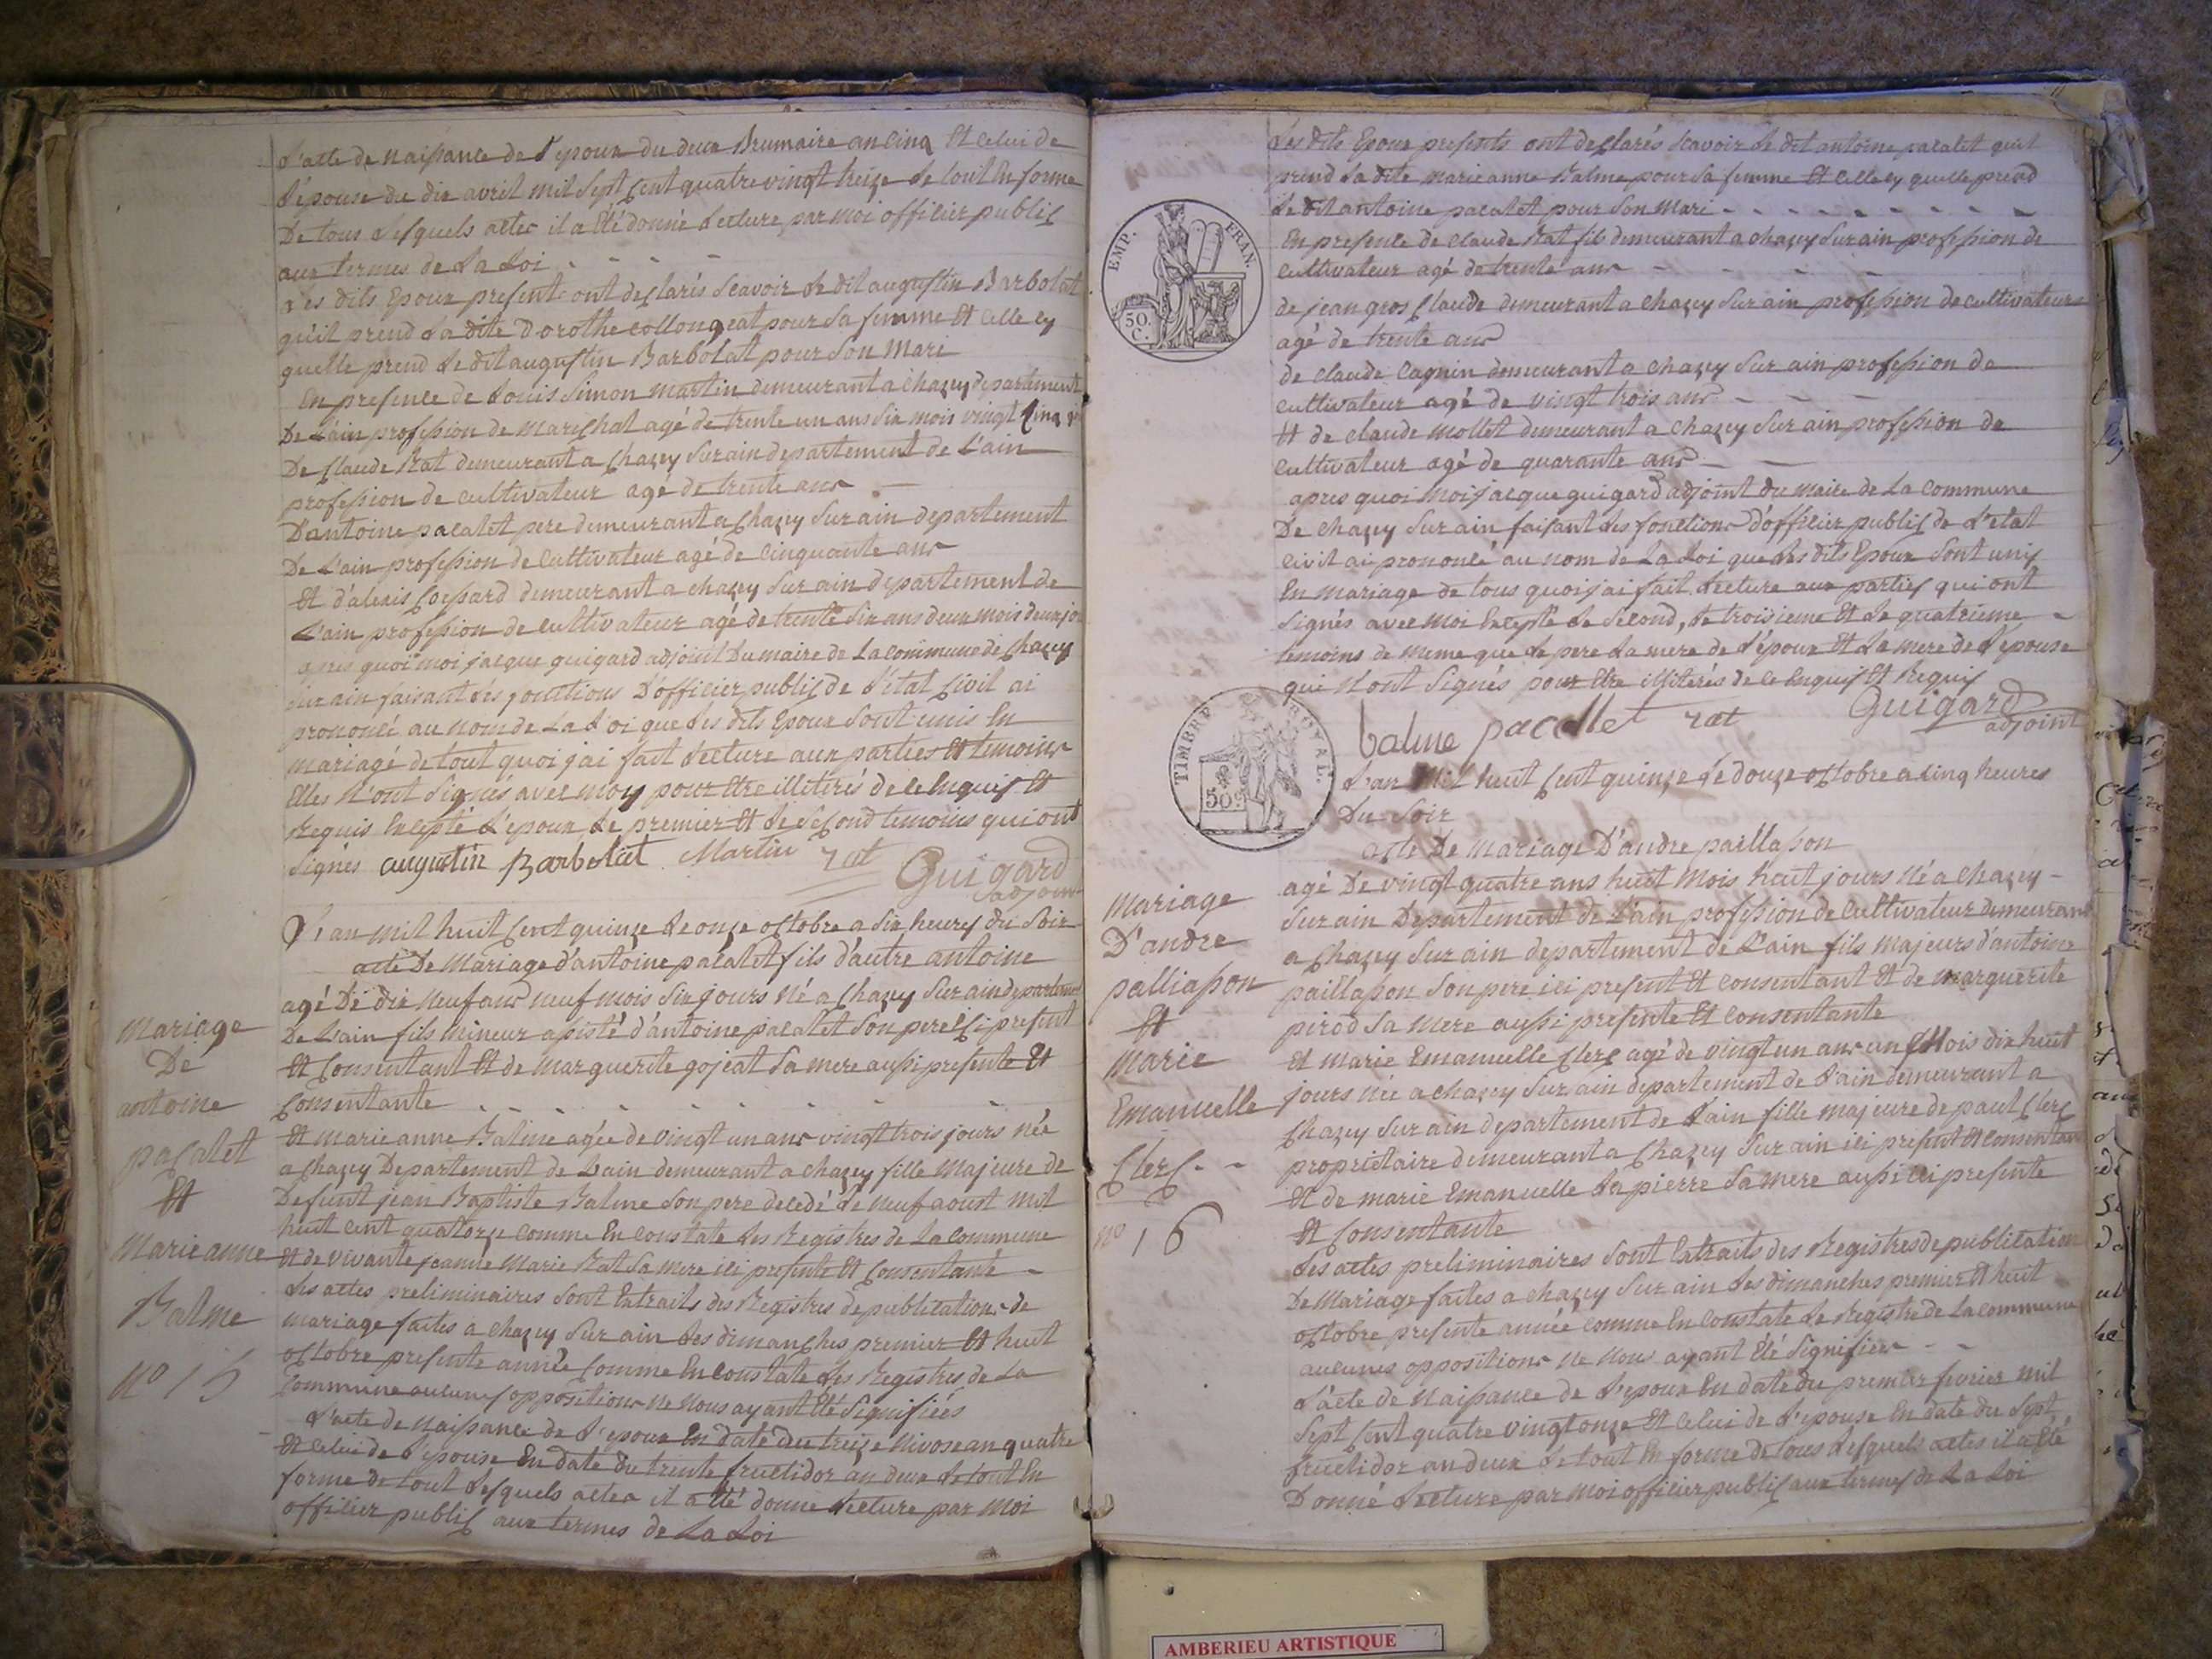 L'acte de naissance de l'epoux du deux Brumaire an cinq Et Celui de
L'épouse du dix avril mil Sept Cent quatre vingt treize Le tout En forme
De tous Lesquels actes il a Eté donné Lecture par moi officier public
aux termes de La Loi
Les dits Epoux present ont declarés Scavoir Le dit augustin Barbolat
qu'il prend La dite Dorothe collongeat pour Sa femme Et Celle cy
quelle prend Le dit augustin Barbolat pour Son Mari
En presence de Louis Simon martin demeurant a chazey departement
De L'ain profession de marechal agé de trente un ans Six mois vingt Cinq
De Claude Rat demeurant a Chazey Sur ain departement de L'ain
profession de cultivateur agé de trente ans
D'antoine pacalet pere demeurant a Chazey Sur ain departement
De L'ain profession de Cultivateur agé de Cinquante ans
Et d'alexis Cossard demeurant a chazey Sur ain departement de
L'ain profession de cultivateur agé de trente Six ans deux mois deux jo
apres quoi moi jacque guigard adjoint Du maire de La commune de Chazey
Sur ain faisant Les fonctions D'officier public de L'état Civil ai
prononcé au nom de La Loi que Les dits Epoux Sont unis En
mariagé de tout quoi jai fait Lecture aux parties Et temoins
Elles N'ont Signés avec Moy pour Etre illiterés de ce Enquis Et
Requis Excepté L'epoux Le premier Et Le Second temoins qui ont
Signés augustin Barbolat Martin rat Guigard
adjoint
L'an mil huit Cent quinze Le onze octobre a Six heures du Soir
acte De Mariage d'antoine pacalet fils d'autre antoine
agé De dix Neuf ans neuf mois Six jours né a Chazey Sur ain departement
De Lain fils Mineur assisté d'antoine pacalet Son pere ici present
Et Consentant Et de Marguerite gojeat Sa mere aussi presente Et
Consentante
Et marie anne Balme agée de vingt un ans vingt trois jours née
a Chazey Departement de Lain demeurant a chazey fille Majeure de
Defunt jean Baptiste Balme Son pere decedé Le neuf aoust mil
huit Cent quatorze comme En constate Les Registres de La Commune
Et de vivante jeanne Marie Rat Sa mere ici presente Et Consentante
Les actes preliminaires Sont Extraits des Registres de publications de
mariage faites a chazey Sur ain Les dimanches premier Et huit
octobre presente année Comme En constate Les Registres de La
Commune aucunes oppositions Ne Nous ayant Eté Signifiées
L'acte de Naissance de L'epoux En date du treize Nivose an quatre
Et Celui de L'epouse En date du trente fructidor an deux Le tout En
forme de tout Lesquels actes il a Eté donné Lecture par Moi
officier public aux termes de La Loi
Mariage
De
antoine
pacalet
Et
Marie anne
Balme
N° 15
Les dits Epoux presents ont declarés Scavoir Le dit antoine pacalet quil
prend La dite marie anne Balme pour Sa femme Et Celle cy quelle prend
Le dit antoine pacalet pour Son Mari
En presence de Claude Rat fils demeurant a chazey Sur ain profession de
Cultivateur agé de trente ans
de jean gros Claude demeurant a chazey Sur ain profession de cultivateur
agé de trente ans
de Claude Cagnin demeurant a chazey Sur ain profession de
cultivateur agé de vingt trois ans
Et de claude mollet demeurant a chazey Sur ain profession de
Cultivateur agé de quarante ans
apres quoi moi jacque guigard adjoint du Maire de La Commune
De chazey Sur ain faisant Les fonctions D'officier public de L'etat
Civil ai prononcé au nom de La Loi que Les dits Epoux Sont unis
En Mariage de tous quoi jai fait Lecture aux parties qui ont
Signés avec moi Excepté Le Second, Le troisieme Et Le quatrieme
temoins de meme que Le pere La mere de L'époux Et La mere de L'épouse
qui N'ont Signés pour Etre illiterés de ce Enquis Et Requis
balme pacallet rat Guigard
adjoint
L'an Mil huit Cent quinze Le douze octobre a Cinq heures
Du Soir
acte De Mariage D'andre paillasson
agé De vingt quatre ans huit Mois huit jours né a Chazey
Sur ain Departement de L'ain profession de Cultivateur demeurant
a Chazey Sur ain departement de L'ain fils majeurs d'antoine
paillasson Son pere ici present Et Consentant Et de marguerite
pirod Sa Mere aussi presente Et Consentante
Et Marie Emanuelle Clerc agé de vingt un ans un Mois dix huit
jours née a chazey Sur ain departement de L'ain demeurant a
Chazey Sur ain departement de L'ain fille majeure de paul Clerc
proprietaire demeurant a Chazey Sur ain ici present Et Consentant
Et de marie Emanuelle La pierre Sa mere aussi ici presente
Et Consentante
Les actes preliminaires Sont Extraits des Registres de publication
De Mariage faites a chazey Sur ain Les dimanches premier Et huit
octobre presente année comme En Constate Le Registre de La commune
aucunes oppositions Ne Nous ayant Eté Signifiees
L'acte de Naissance de L'epoux En date du premier fevrier mil
Sept Cent quatre vingt onze Et Celui de L'epouse En date du Sept
fructidor an deux Le tout En forme de tous Lesquels actes il a Eté
Donné Lecture par Moi officier public aux termes de La Loi
Mariage
D'andre
palliasson
Et
Marie
Emanuelle
Clerc
N° 16
EMP. FRAN.
50.
C.
TIMBRE ROYAL
50
AMBERIEU ARTISTIQUE